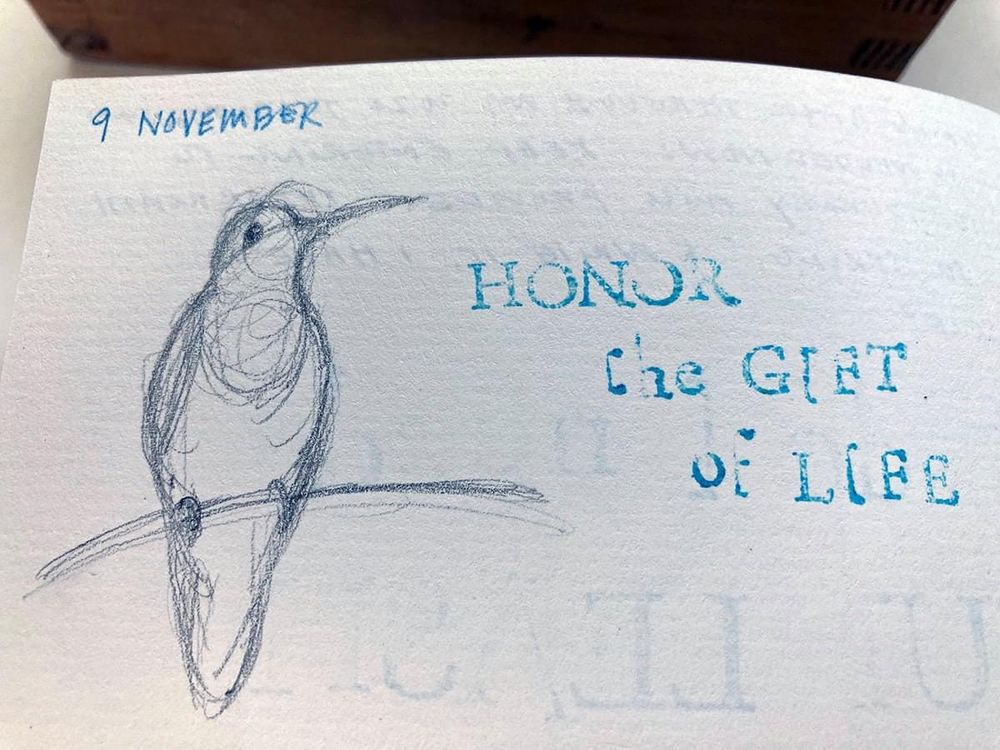 9 NOVEMBER
HONOR
the GIFT
of LIFE